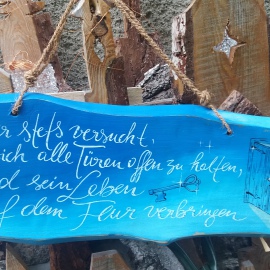 stets versucht,
sich alle Türen offen zu halten,
sein Leben
dem Flur verbringen